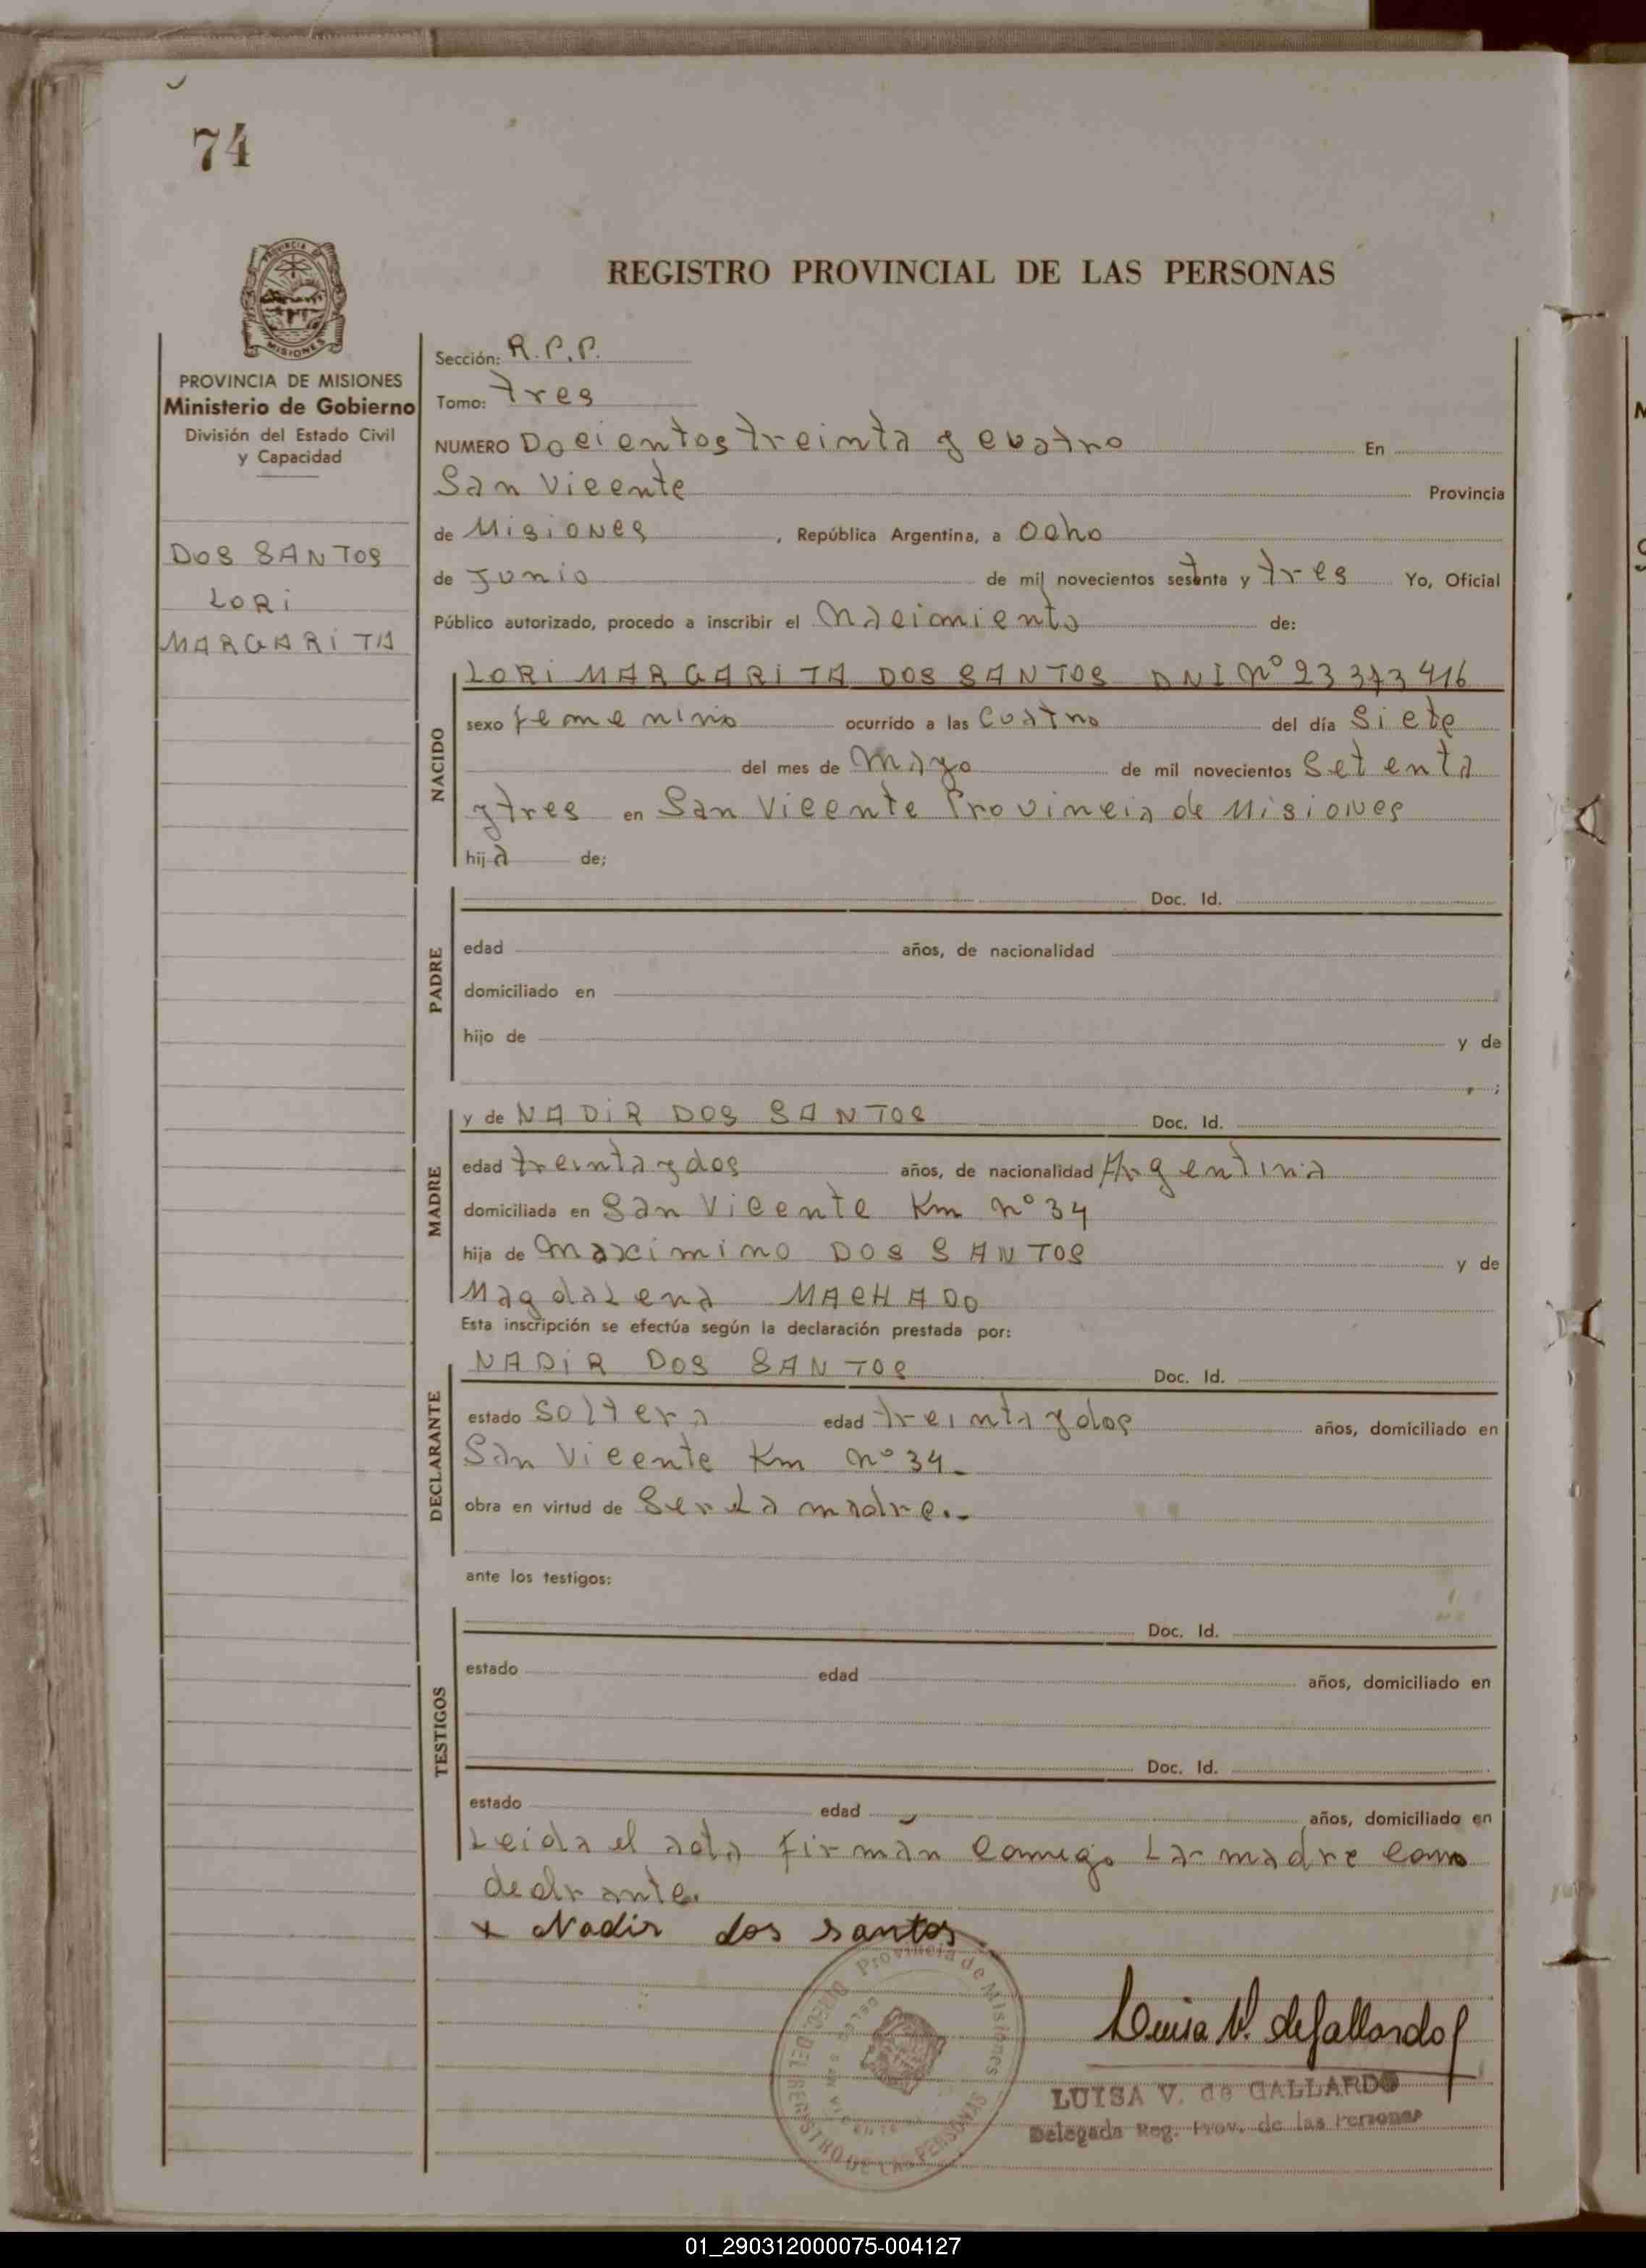 74
REGISTRO PROVINCIAL DE LAS PERSONAS
PROVINCIA DE MISIONES
Ministerio de Gobierno
División del Estado Civil
y Capacidad
DOS SANTOS
LORI
MARGARITA
Sección: R.P.P.
Tomo: tres
NUMERO Docientos treinta y cuatro En
San Vicente Provincia
de Misiones, República Argentina, a Ocho
de Junio de mil novecientos setenta y tres Yo, Oficial
Público autorizado, procedo a inscribir el Nacimiento de:
NACIDO
LORI MARGARITA DOS SANTOS DNI Nº 23 373 416
sexo femenino ocurrido a las Cuatro del día Siete
del mes de Mayo de mil novecientos Setenta
y tres en San Vicente Provincia de Misiones
hija de;
PADRE
Doc. Id.
edad años, de nacionalidad
domiciliado en
hijo de y de
, ;
MADRE
y de NADIR DOS SANTOS Doc. Id.
edad treinta y dos años, de nacionalidad Argentina
domiciliada en San Vicente Km Nº 34
hija de Maximino DOS SANTOS y de
Magdalena MACHADO
Esta inscripción se efectúa según la declaración prestada por:
DECLARANTE
NADIR DOS SANTOS Doc. Id.
estado soltera edad treinta y dos años, domiciliado en
San Vicente Km Nº 34.-
obra en virtud de Ser La madre.-
ante los testigos:
TESTIGOS
Doc. Id.
estado edad años, domiciliado en
Doc. Id.
estado edad años, domiciliado en
Leida el acta firman Comigo La madre como
declrante.
x Nadir dos santos.
Provincia de Misiones
REGISTRO DE LAS PERSONAS
SAN VICENTE
Luisa V. de Gallardo
LUISA V. de GALLARDO
Delegada Reg. Prov. de las Personas
01_290312000075-004127